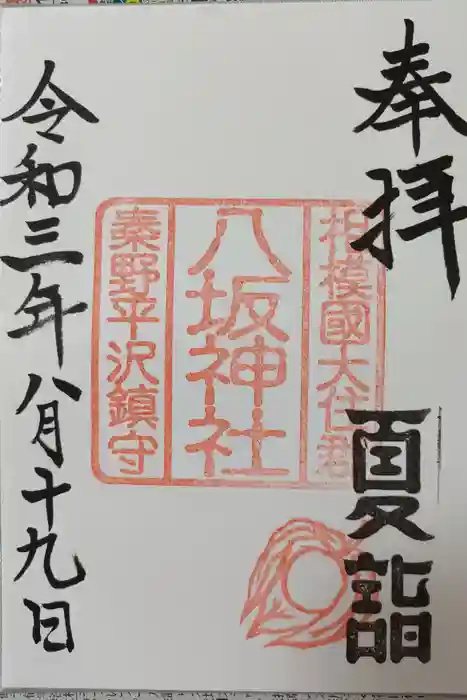 奉拝
夏詣
相模國大住郡
八坂神社
秦野平沢鎮守
令和三年八月十九日